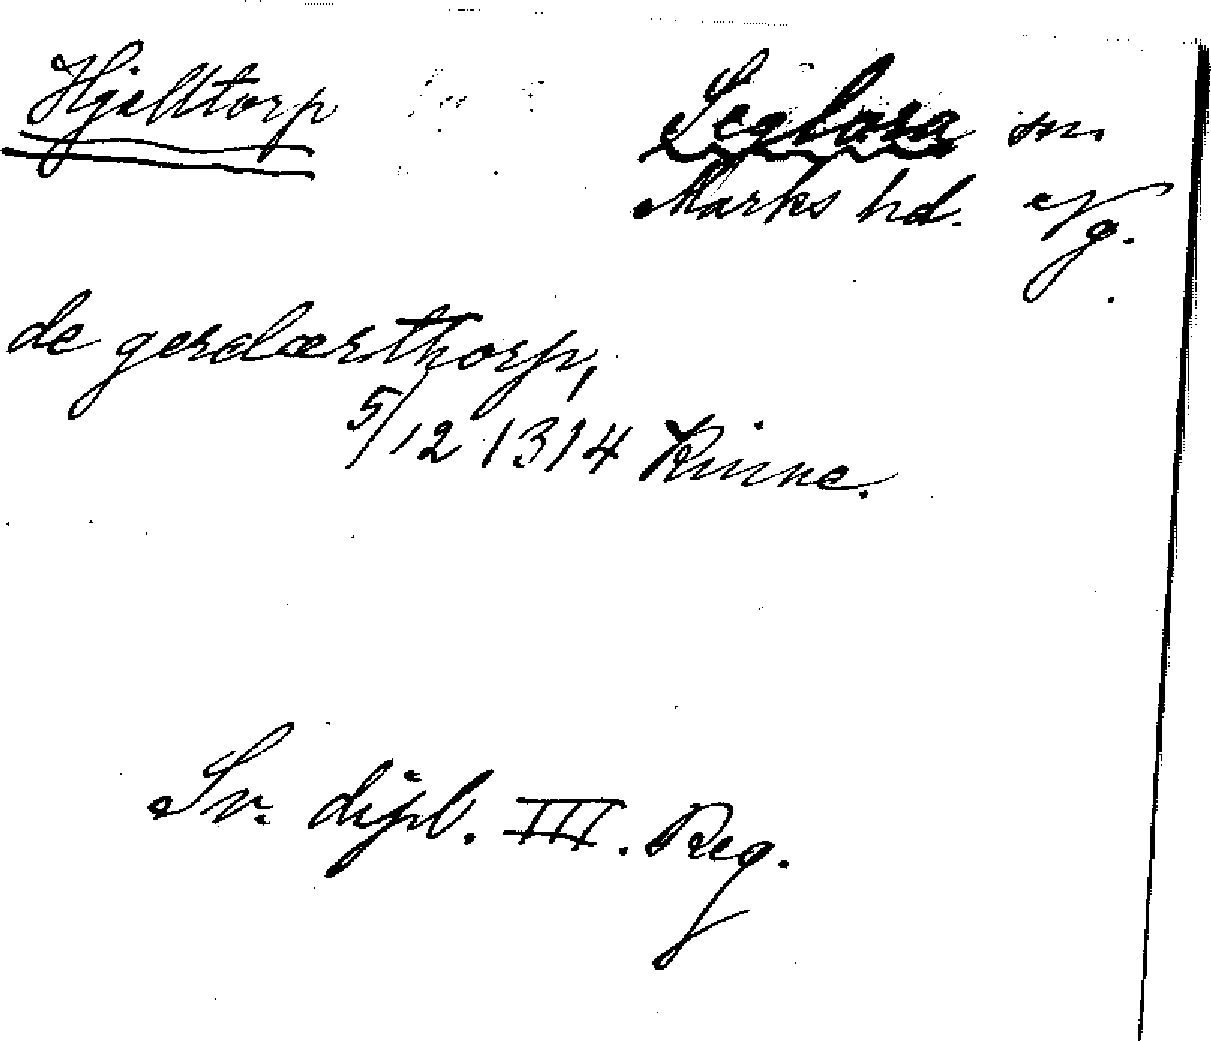 Hjälltorp Seglora sn.
Marks hd. Vg.
de gerdærthorp,
5/12 1314 Kinne.
Sv. dipl. III. Reg.